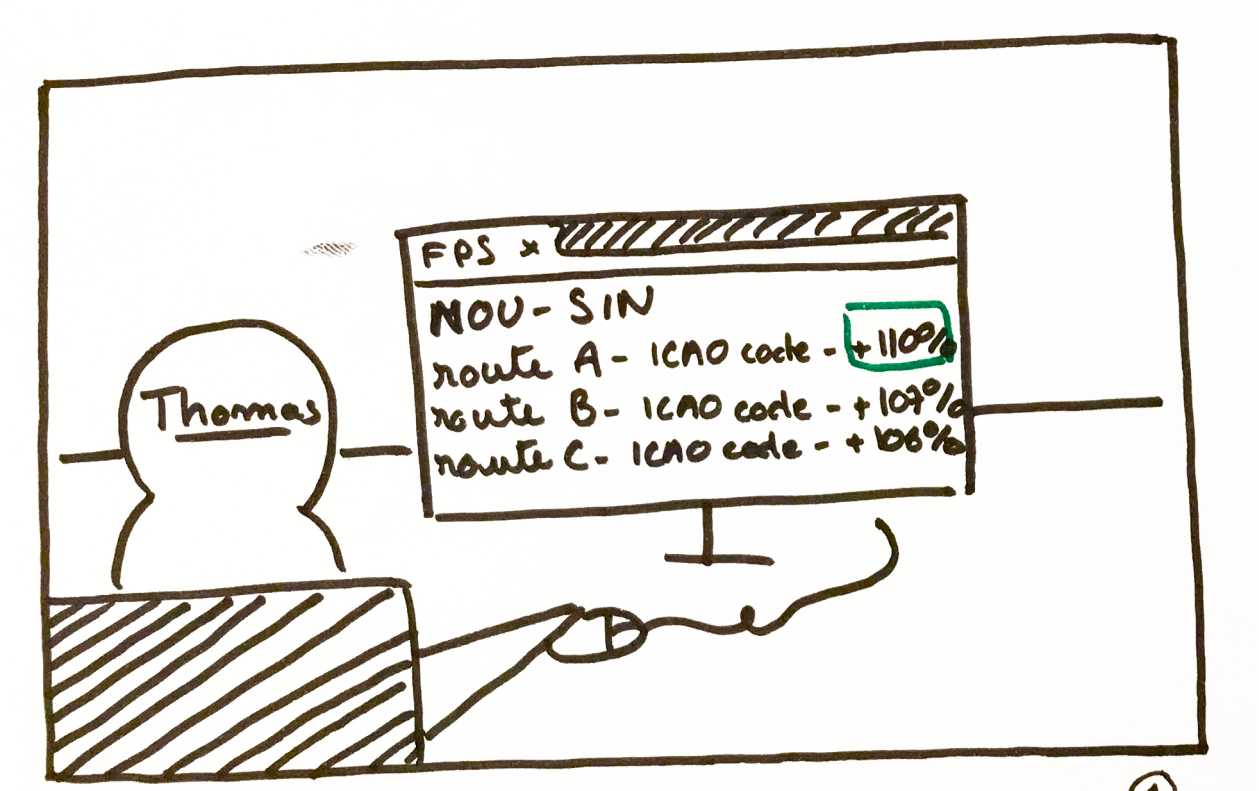 Thomas
FPS x
NOU - SIN
route A - ICAO code - +110%
route B - ICAO code - +107%
route C - ICAO code - +106%